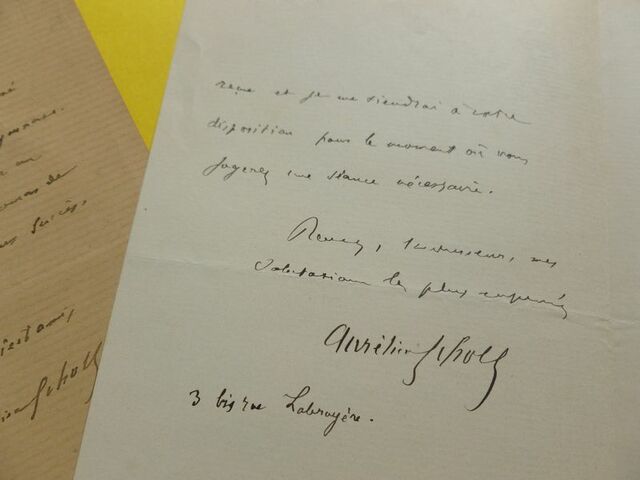 né
de
Succès,
Scholl
reçue et je me tiendrai à votre
disposition pour le moment où vous
jugerez une séance nécessaire.
Recevez, Monsieur, mes
salutations les plus
Aurélien Scholl
3 bis rue Labruyère.